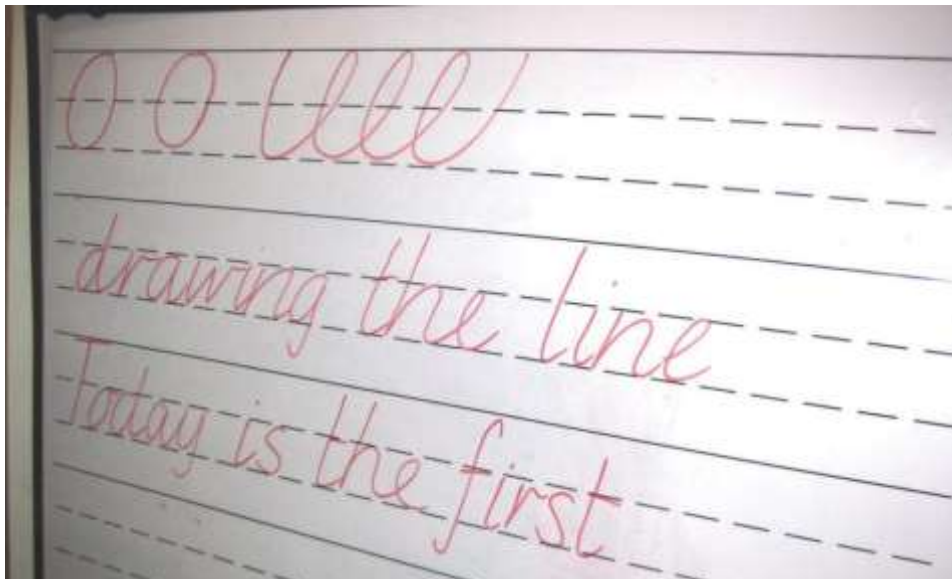 O O llll
drawing the line
Today is the first